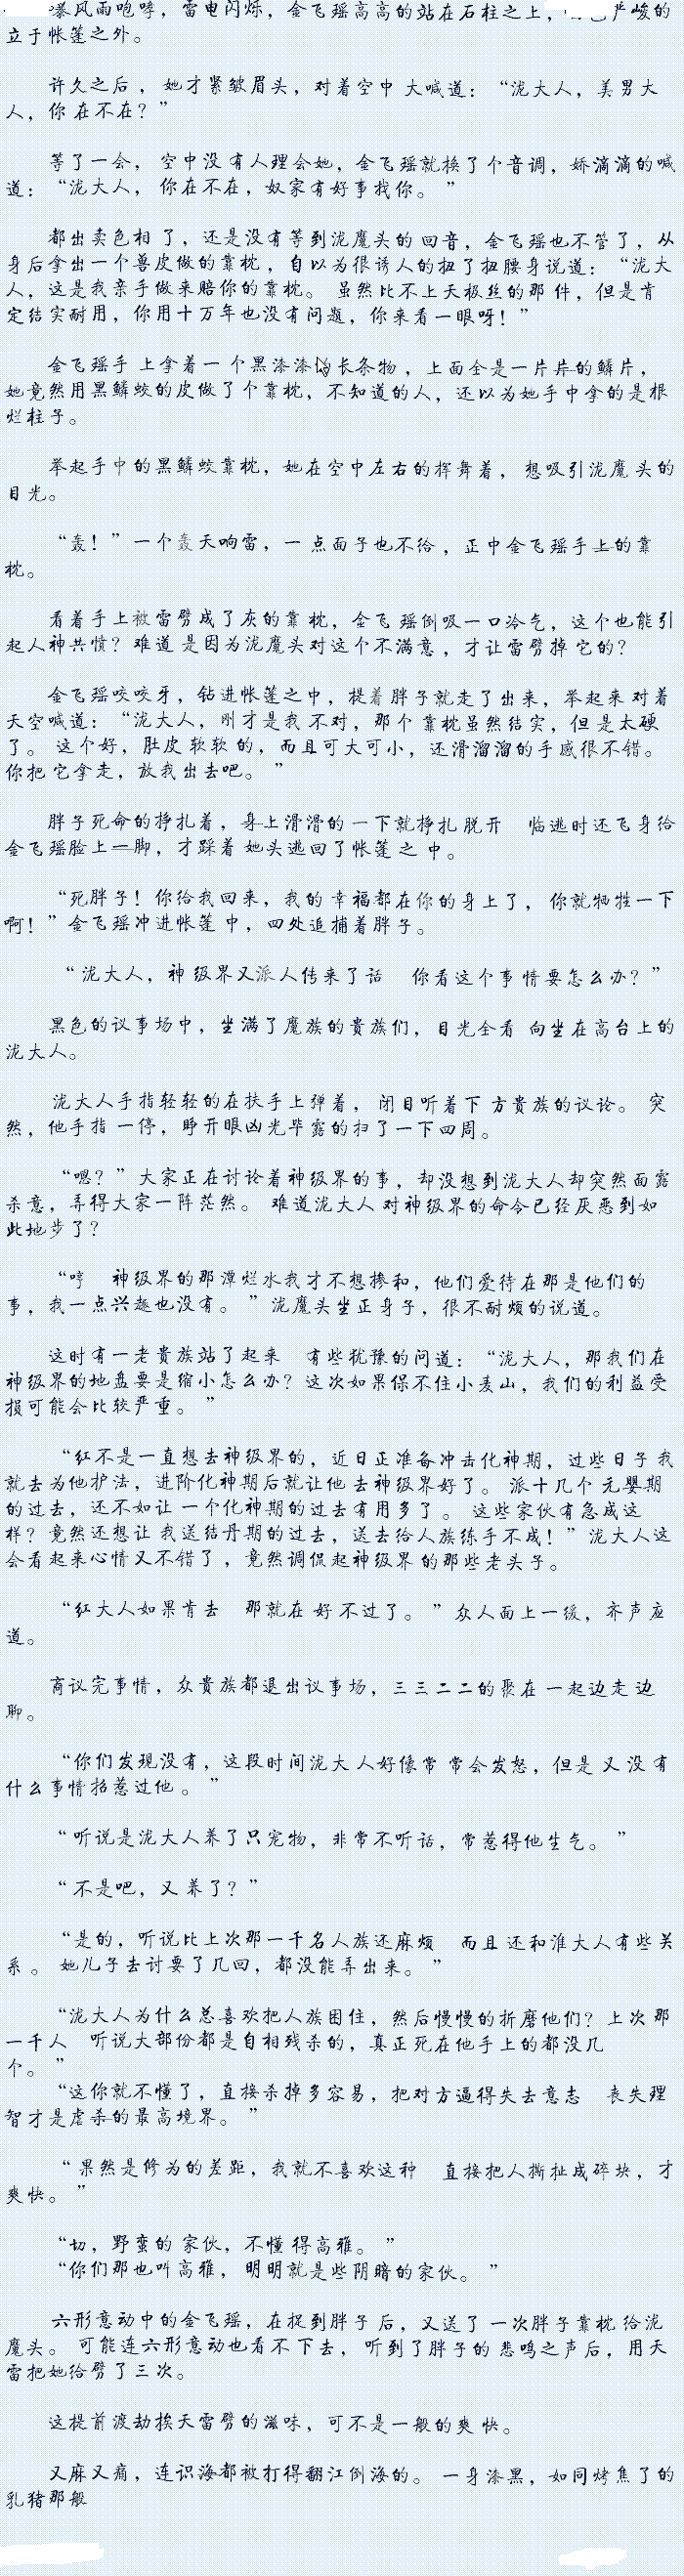 暴风雨咆哮，雷电闪烁，金飞瑶高高的站在石柱之上，严峻的
立于帐篷之外。
许久之后，她才紧皱眉头，对着空中大喊道：“泷大人，美男大
人，你在不在？”
等了一会，空中没有人理会她，金飞瑶就换了个音调，娇滴滴的喊
道：“泷大人，你在不在，奴家有好事找你。”
都出卖色相了，还是没有等到泷魔头的回音，金飞瑶也不管了，从
身后拿出一个兽皮做的靠枕，自以为很诱人的扭了扭腰身说道：“泷大
人，这是我亲手做来赔你的靠枕。虽然比不上天极丝的那件，但是肯
定结实耐用，你用十万年也没有问题，你来看一眼呀！”
金飞瑶手上拿着一个黑漆漆的长条物，上面全是一片片的鳞片，
她竟然用黑鳞蛟的皮做了个靠枕，不知道的人，还以为她手中拿的是根
烂柱子。
举起手中的黑鳞蛟靠枕，她在空中左右的挥舞着，想吸引泷魔头的
目光。
“轰！”一个轰天响雷，一点面子也不给，正中金飞瑶手上的靠
枕。
看着手上被雷劈成了灰的靠枕，金飞瑶倒吸一口冷气，这个也能引
起人神共愤？难道是因为泷魔头对这个不满意，才让雷劈掉它的？
金飞瑶咬咬牙，钻进帐篷之中，提着胖子就走了出来，举起来对着
天空喊道：“泷大人，刚才是我不对，那个靠枕虽然结实，但是太硬
了。这个好，肚皮软软的，而且可大可小，还滑溜溜的手感很不错。
你把它拿走，放我出去吧。”
胖子死命的挣扎着，身上滑滑的一下就挣扎脱开 临逃时还飞身给
金飞瑶脸上一脚，才踩着她头逃回了帐篷之中。
“死胖子！你给我回来，我的幸福都在你的身上了，你就牺牲一下
啊！”金飞瑶冲进帐篷中，四处追捕着胖子。
“泷大人，神级界又派人传来了话 你看这个事情要怎么办？”
黑色的议事场中，坐满了魔族的贵族们，目光全看向坐在高台上的
泷大人。
泷大人手指轻轻的在扶手上弹着，闭目听着下方贵族的议论。突
然，他手指一停，睁开眼凶光毕露的扫了一下四周。
“嗯？”大家正在讨论着神级界的事，却没想到泷大人却突然面露
杀意，弄得大家一阵茫然。难道泷大人对神级界的命令已经厌恶到如
此地步了？
“哼 神级界的那潭烂水我才不想掺和，他们爱待在那是他们的
事，我一点兴趣也没有。”泷魔头坐正身子，很不耐烦的说道。
这时有一老贵族站了起来 有些犹豫的问道：“泷大人，那我们在
神级界的地盘要是缩小怎么办？这次如果保不住小麦山，我们的利益受
损可能会比较严重。”
“红不是一直想去神级界的，近日正准备冲击化神期，过些日子我
就去为他护法，进阶化神期后就让他去神级界好了。派十几个元婴期
的过去，还不如让一个化神期的过去有用多了。这些家伙有急成这
样？竟然还想让我送结丹期的过去，送去给人族练手不成！”泷大人这
会看起来心情又不错了，竟然调侃起神级界的那些老头子。
“红大人如果肯去 那就在好不过了。”众人面上一缓，齐声应
道。
商议完事情，众贵族都退出议事场，三三二二的聚在一起边走边
聊。
“你们发现没有，这段时间泷大人好像常常会发怒，但是又没有
什么事情招惹过他。”
“听说是泷大人养了只宠物，非常不听话，常惹得他生气。”
“不是吧，又养了？”
“是的，听说比上次那一千名人族还麻烦 而且还和淮大人有些关
系。她儿子去讨要了几回，都没能弄出来。”
“泷大人为什么总喜欢把人族困住，然后慢慢的折磨他们？上次那
一千人 听说大部份都是自相残杀的，真正死在他手上的都没几
个。”
“这你就不懂了，直接杀掉多容易，把对方逼得失去意志 丧失理
智才是虐杀的最高境界。”
“果然是修为的差距，我就不喜欢这种 直接把人撕扯成碎块，才
爽快。”
“切，野蛮的家伙，不懂得高雅。”
“你们那也叫高雅，明明就是些阴暗的家伙。”
六形意动中的金飞瑶，在捉到胖子后，又送了一次胖子靠枕给泷
魔头。可能连六形意动也看不下去，听到了胖子的悲鸣之声后，用天
雷把她给劈了三次。
这提前渡劫挨天雷劈的滋味，可不是一般的爽快。
又麻又痛，连识海都被打得翻江倒海的。一身漆黑，如同烤焦了的
乳猪那般